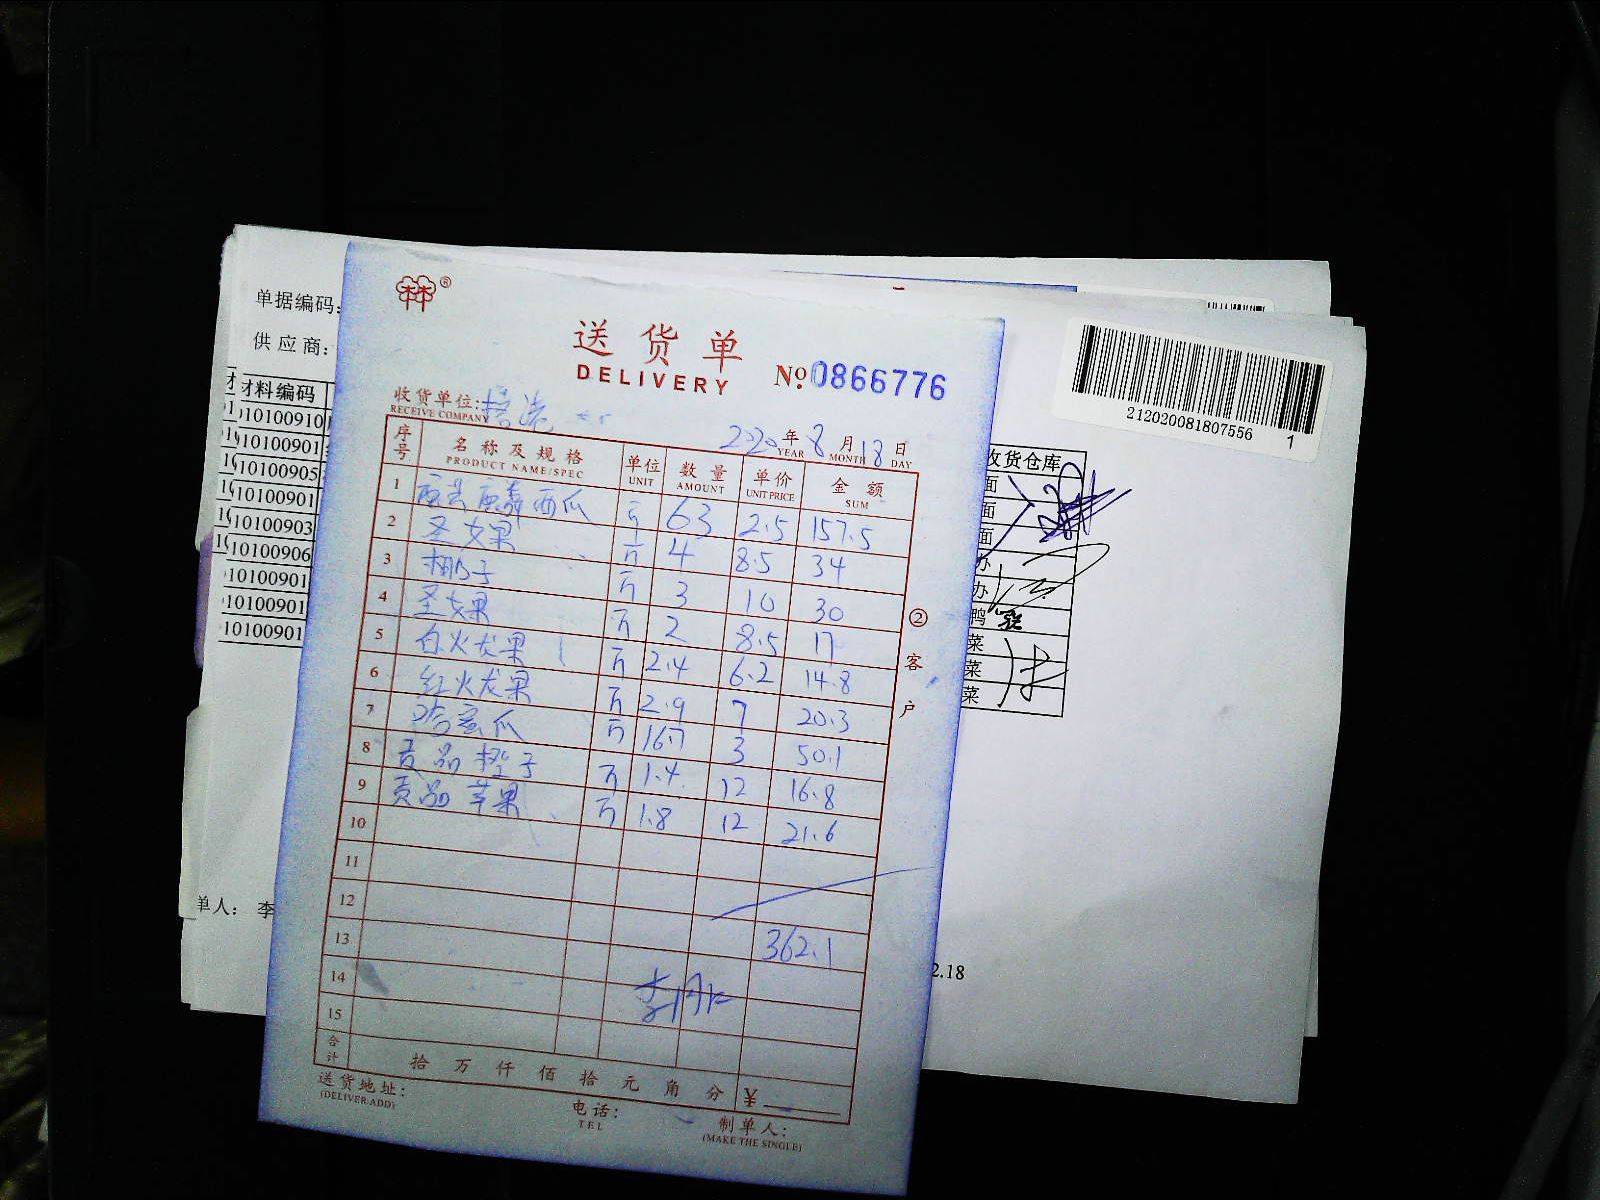 单据编码:
供应商:
材料编码
10100910
10100901
10100905
10100901
10100903
10100906
10100901
10100901
10100901
单人: 李
®
送货单
DELIVERY
№ 0866776
收货单位:
RECEIVE COMPANY
2020年8月18日
YEAR MONTH DAY
序号 名称及规格 单位 数量 单价 金额
PRODUCT NAME/SPEC UNIT AMOUNT UNIT PRICE SUM
1 西瓜 斤 63 2.5 157.5
2 圣女果 斤 4 8.5 34
3 椰子 斤 3 10 30
4 圣女果 斤 2 8.5 17
5 白火龙果 斤 2.4 6.2 14.8
6 红火龙果 斤 2.9 7 20.3
7 哈蜜瓜 斤 16.7 3 50.1
8 贡品橙子 斤 1.4 12 16.8
9 贡品苹果 斤 1.8 12 21.6
10
11
12
13 362.1
14
15
合计 拾万仟佰拾元角分 ¥
送货地址:
(DELIVER ADD)
电话:
TEL
制单人:
(MAKE THE SINGLE)
②客户
212020081807556 1
收货仓库
面
面
面
办
办
鸭
菜
菜
菜
2.18